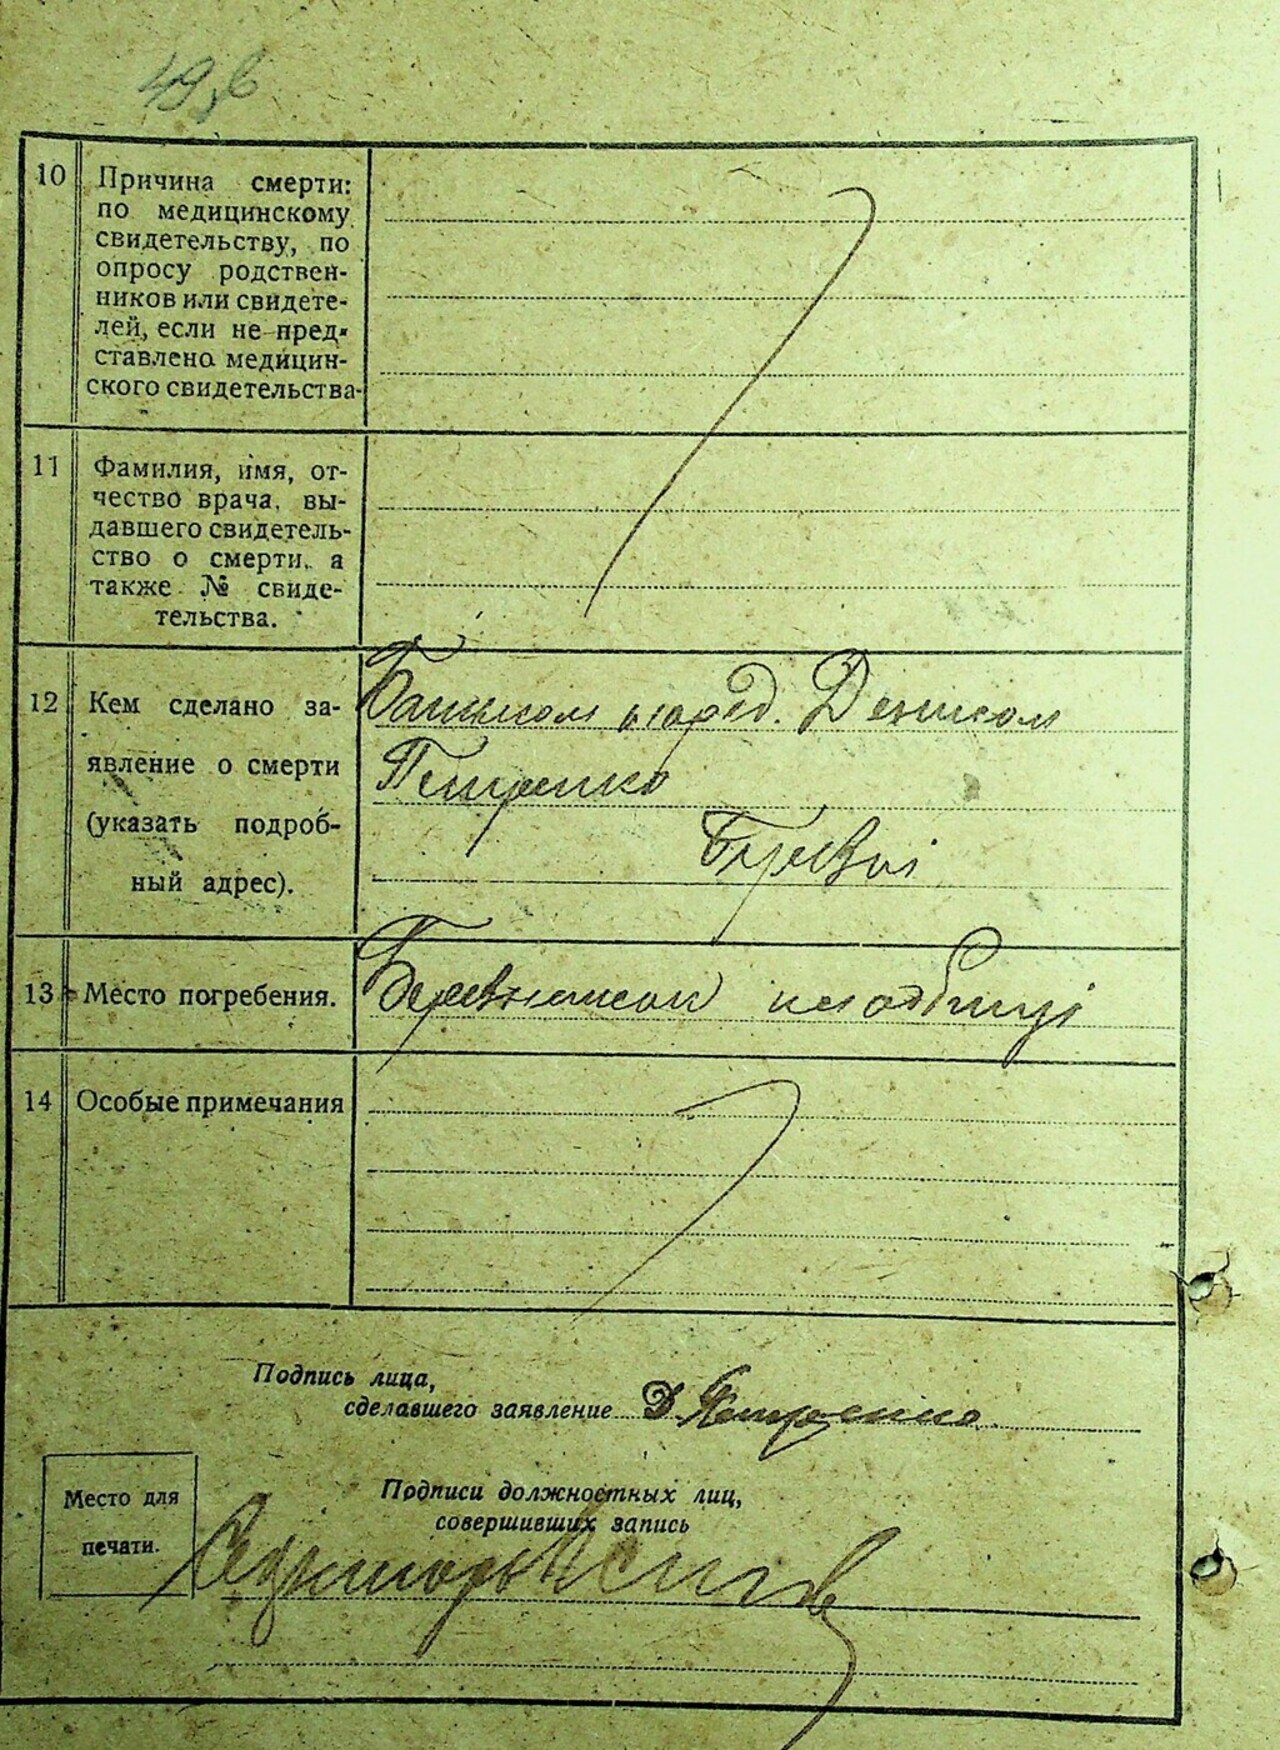 10 Причина смерти:
по медицинскому
свидетельству, по
опросу родствен-
ников или свидете-
лей, если не пред-
ставлено медицин-
ского свидетельства
11 Фамилия, имя, от-
чество врача, вы-
давшего свидетель-
ство о смерти, а
также № свиде-
тельства.
12 Кем сделано за-
явление о смерти
(указать подроб-
ный адрес).
Батьком Денисом
Петренко
13 Место погребения.
кладбищі
14 Особые примечания
Подпись лица,
сделавшего заявление Д Петренко.
Подписи должностных лиц,
совершивших запись
Место для
печати.